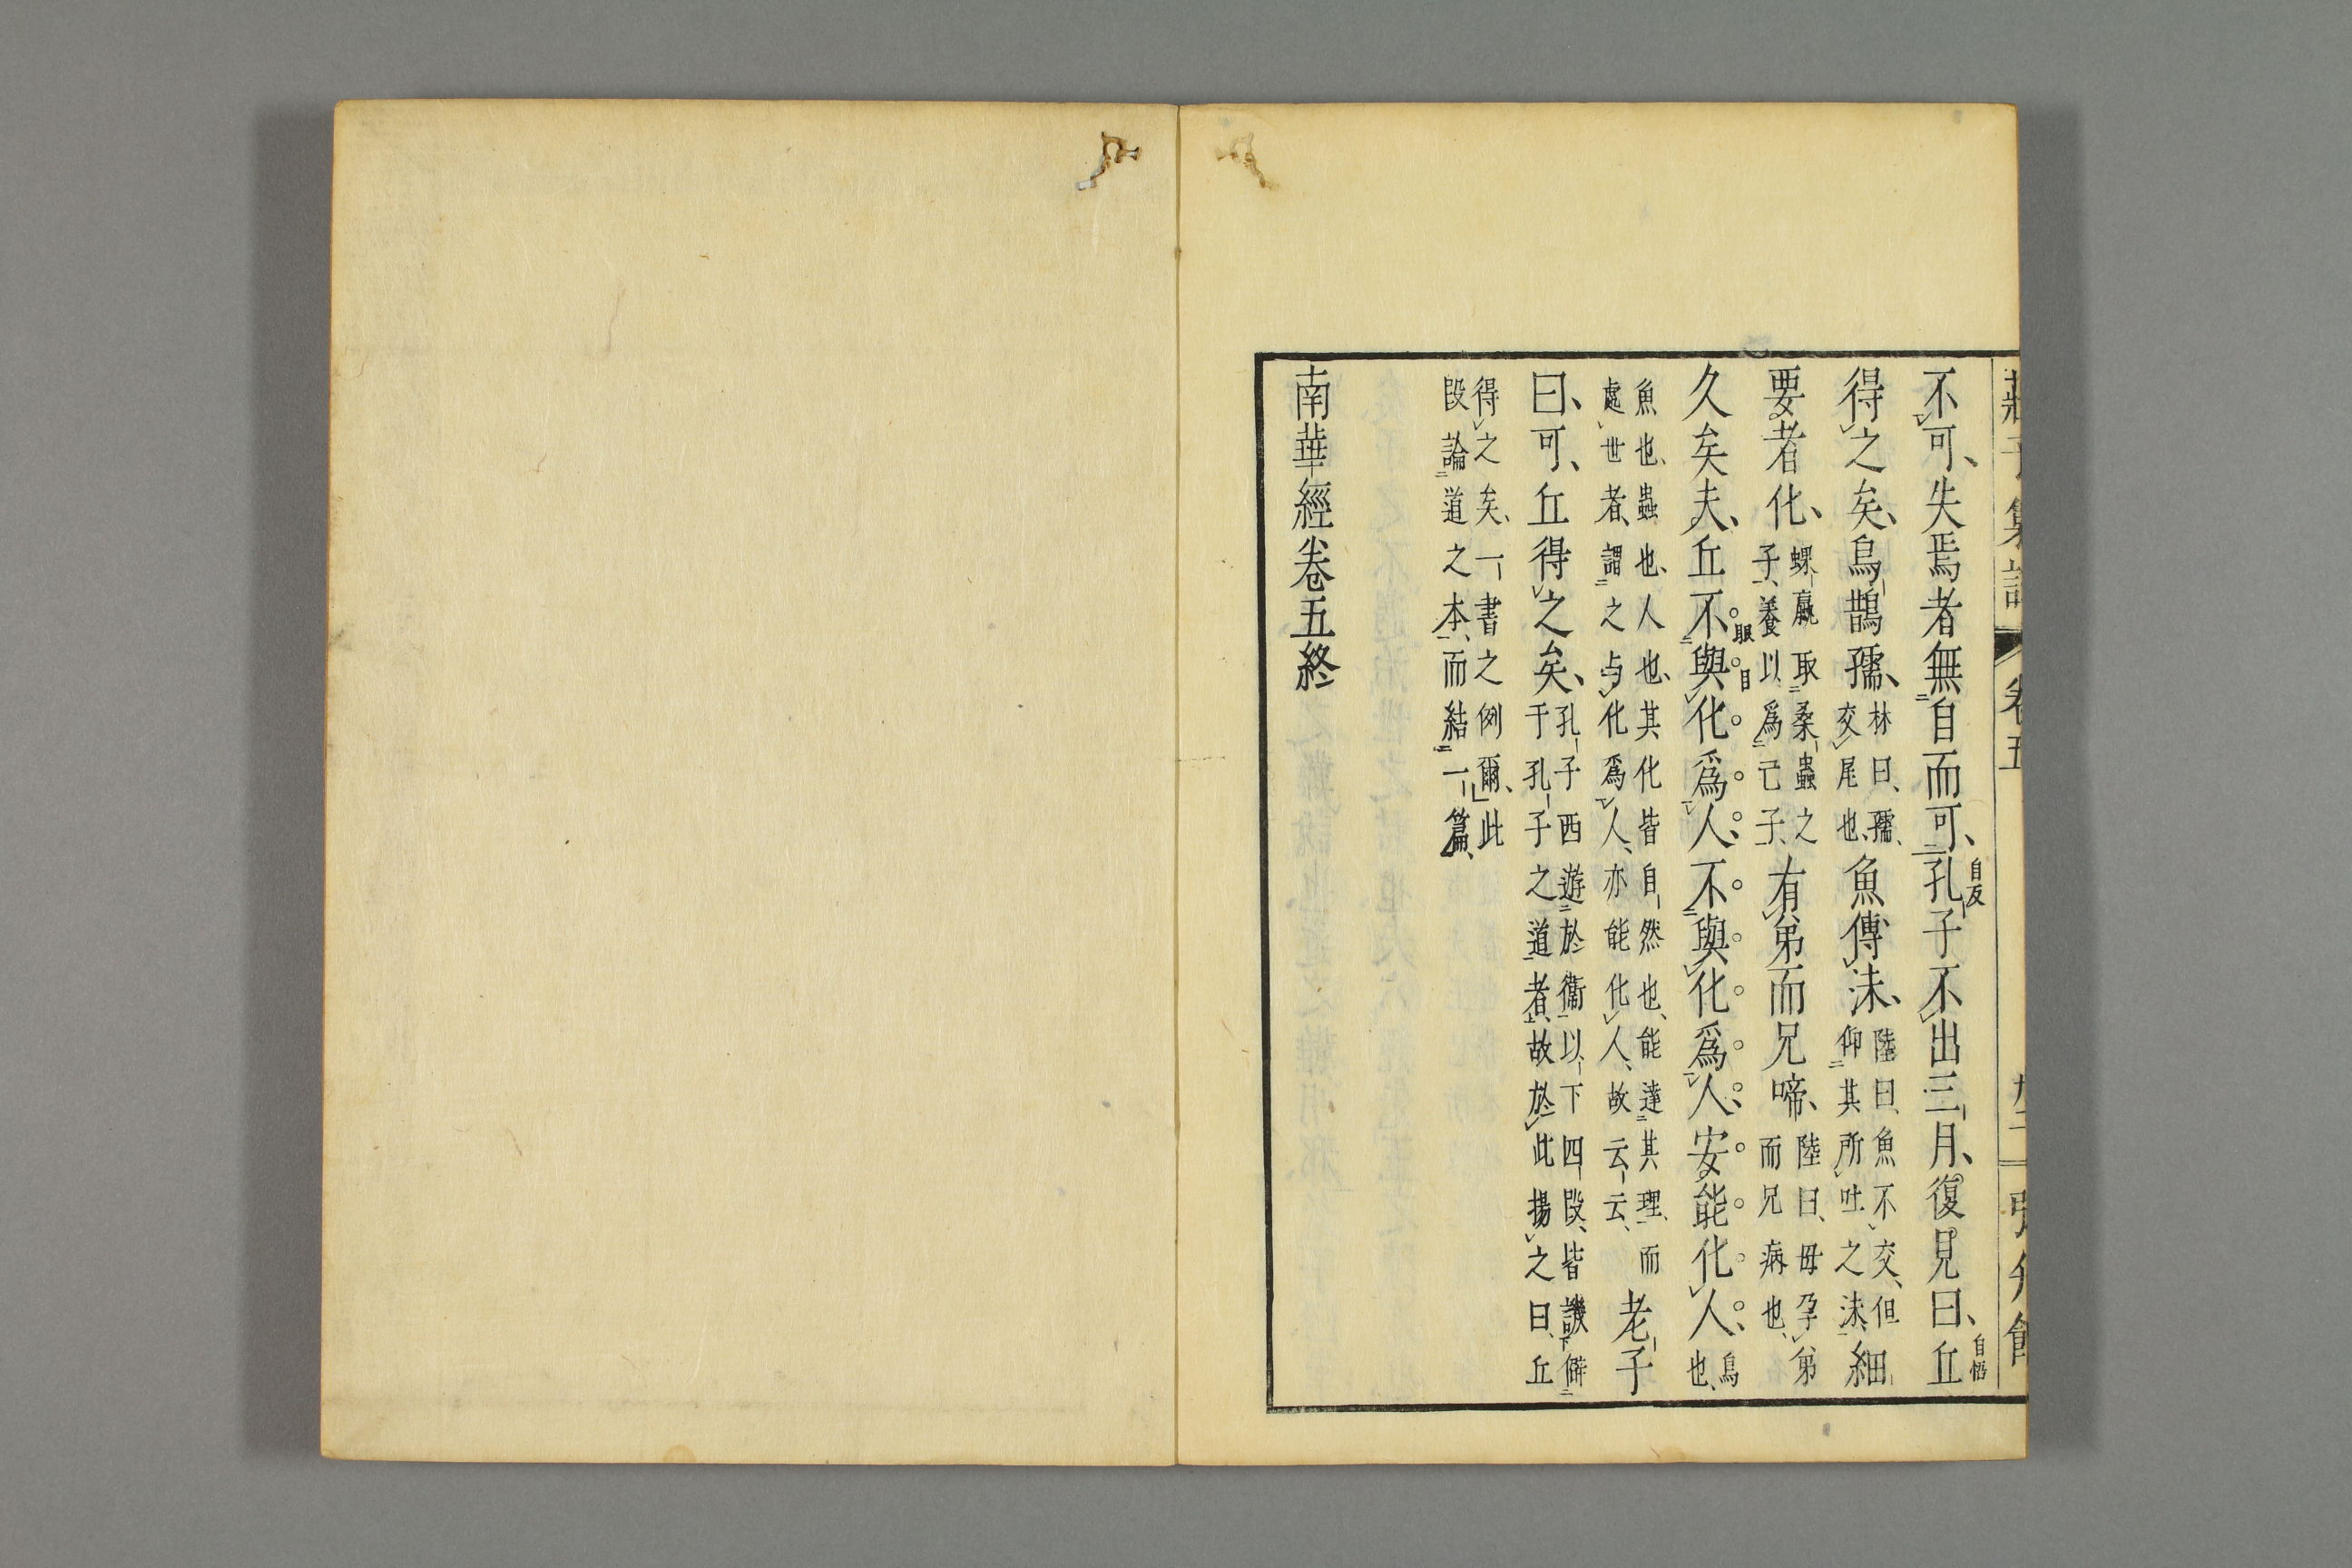 不可、失焉者無自而可、孔子不出三月、復見曰、丘
自反
自悟
得之矣、烏鵲孺、林曰、孺、交尾也、魚傳沫、陸曰、魚不交、但仰其所吐之沫、細
要者化、蜾蠃取桑蟲之子、養以爲己子、有弟而兄啼、陸曰、母孕弟而兄病也、
久矣夫、丘不與化爲人、不與化爲人、安能化人、鳥也、
眼目
魚也、蟲也、人也、其化皆自然也、能達其理、而處世者、謂之与化爲人、亦能化人、故云云、老子
曰、可、丘得之矣、孔子西遊於衞以下四段、皆譏僻于孔子之道者、故於此揚之曰、丘
得之矣、一書之例爾、此段論道之本、而結一篇、
南華經卷五終
卷五